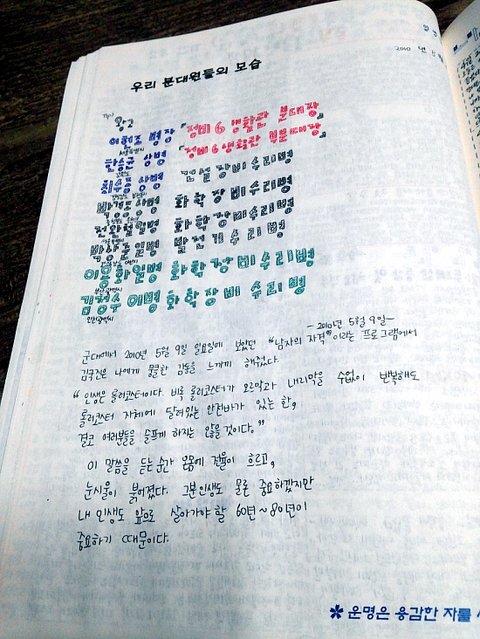 2010 년
우리 분대원들의 모습
왕고
이희조 병장 「정비 6 생활관 분대장」
한승균 상병 「정비 6 생활관 부분대장」
최수용 상병 건설장비수리병
박경도상병 화학장비수리병
전환철일병 화학장비수리병
박상훈일병 발전기수리병
이용화일병 화학장비수리병
김정수 이병 화학장비 수리병
인천광역시
—2010년 5월 9일—
군대에서 2010년 5월 9일 일요일에 보았던 "남자의 자격"이라는 프로그램에서
김국진은 나에게 뭉클한 감동을 느끼게 해줬다.
"인생은 롤러코스터이다. 비록 롤러코스터가 오르막과 내리막을 수없이 반복해도
롤러코스터 자체에 달려있는 안전바가 있는 한,
결코 여러분들을 슬프게 하지는 않을 것이다."
이 말씀을 듣는 순간 온몸에 전율이 흐르고,
눈시울이 붉어졌다. 그분 인생도 물론 중요하겠지만
내 인생도 앞으로 살아가야 할 60년~80년이
중요하기 때문이다.
✽ 운명은 용감한 자를